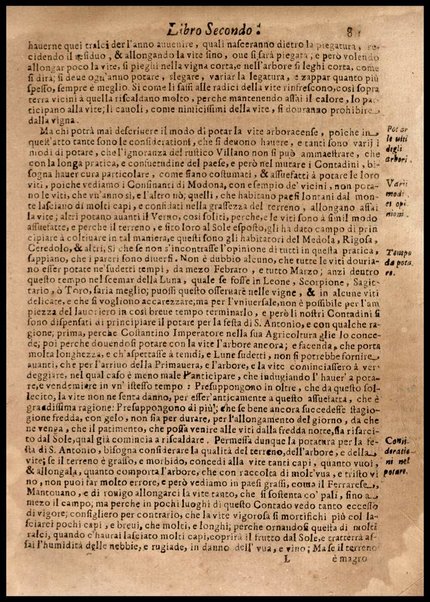 Libro Secondo. 8
hauerne quei tralci der l'anno auuenire, quali nasceranno dietro la piegatura, re-
cidendo il residuo, & allongando la vite sino, oue si farà piegata, e però volendo
allongar poco la vite, si pieghi nella vigna corta, e nell'arbore si leghi corta, come
si dirà; si deue ogn'anno potare, slegare, variar la legatura, e zappar quanto più
spesso, sempre è meglio. Si come li sassi alle radici della vite rinfrescono, così sopra
terra vicini à quella riscaldano molto, perche mantenendo assai il calore, lo par-
ticipano alla vite; li cauoli, come nimicissimi della vite, si douranno prohibire
dalla vigna.
Ma chi potrà mai descriuere il modo di potar la vite arborascense, poiche in
quest'atto tante sono le considerationi, che si deuono hauere, e tanti sono varij i
modi di potare, che l'ignoranza del rustico Villano non si può ammaestrare, che
con la longa pratica, e consuetudine del paese, e però nel mutare i Contadini, bi-
sogna hauer cura particolare, come siano costumati, & assuefatti à potare le loro
viti, poiche vediamo i Confinanti di Modona, con esempio de' vicini, non pota-
no le vite, che vn'anno sì, e l'altro nò; quelli, che habitano paesi lontani dal mon-
te lasciano di molti capi, e confidati nella grassezza del terreno, allongano assai
la vite; altri potano auanti il Verno, così soliti, perche, e le viti sono à simil modo
assuefatte, e perche il terreno, e sito loro al Sole esposto, gli hà dato campo di prin-
cipiare à coltiuare in tal maniera, e questi sono gli habitatori del Medola, Rigosa,
Ceredolo, & altri, Si che se non s'incontrasse l'opinione di tutti in questa pratica,
sappiano, che i pareri sono diuersi. Non è dubbio alcuno, che tutte le viti douria-
no esser potate ne' sudetti tempi, da mezo Febraro, e tutto Marzo; anzi dentro
questo tempo nel scemar della Luna, quale se fosse in Leone, Scorpione, Sagit-
tario, ò Toro, saria meglio, puossi questo osseruare nelle vigne, & in alcune viti
delicate, e che si vogliono accarezzare, ma per l'vniuersale, non è possibile per l'im
piezza del lauoriero in così breue tempo terminarlo, e però li nostri Contadini si
sono dispensati di principiare il potare per la festa di S. Antonio, e con qualche ra-
gione; prima, perche Costantino Imperatore nella sua Agricoltura glie lo conce-
de, poi perche douendosi potare con la vite l'arbore ancora; e facenda, che porta
molta longhezza, e ch'aspertasse à temdi, e Lune sudetti, non si potrebbe fornire,
auanti, che per l'arriuo della Primauera, e l'arbore, e la vite cominciassero à ver-
deggiare, nel qual caso è meno male Panticipare, che indugiando l' hauer'à pota-
re, e vendemiare in vn' istesso tempo: Presuppongono in oltre, che da questo sol-
lecito, la vite non ne senta danno, per esser'anticamente à questo assuefatta, che è
grandissima ragione: Presuppongono di più, che se bene ancora succedesse stagio-
gione fredda, con gelo, non sia per durare, per l'allongamento del giorno, da che
ne venga, che il patimento, che possa venire alle viti dalla fredda notte, sia risarci-
to dal Sole, qual già comincia à riscaldare. Permessa dunque la potatura per la fe-
sta di S. Antonio, bisogna considerare la qualità del terreno, dell'arbore, e della
vite; se il terreno è grasso, e morbido, concedi alla vite tanti capi, quanti vuoi,
& allongala, quanto comporta l'arbore; che con raccolta di molt'vua, e tristo vi
no, non puoi far molto errore, e però vediamo in paesi grassi, come il Ferrarese,
Mantouano, e di rouigo allongarci la vite tanto, che si sostenta co' pali, fino a
mezo il campo, ma perche in pochi luoghi di questo Contado vedo tanto eccesso
di vigore; consigliero per contrario, che la vite vigorosa si mortifichi più col la-
sciarci pochi capi, e breui, che molti, e longhi, perche ornandosi questa di molti
ralci, quando c'haurai lasciato molti capi, coprirà il frutto dal Sole, e tratterrà af-
fai l'humidità delle nebbie, e rugiade, in danno dell' vua, e vino; Ma se il terreno
L è magro
Potar
le viti
degli
arbori.
Varij
opi
nioni.
Tempo
da pota
re.
Consi
deratio
ni nel
potare.